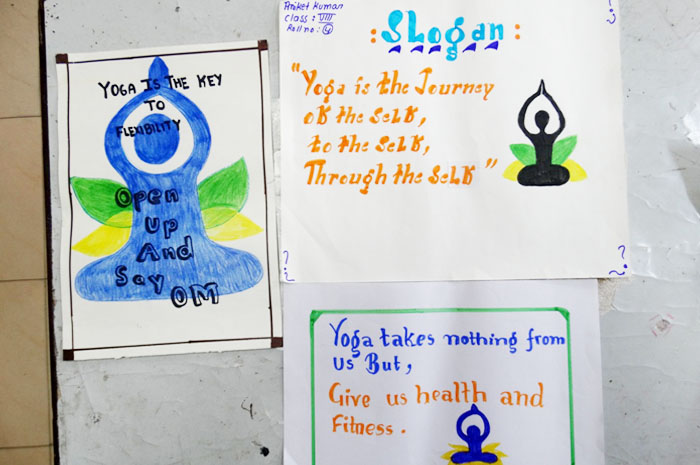 YOGA IS THE KEY
TO
FLEXIBILITY
Open
Up
And
Say
OM
Aniket Kumar
Class : VIII
Roll no : 4
: Slogan :
"Yoga is the Journey
of the self,
to the self,
Through the self"
Yoga takes nothing from
us But,
Give us health and
Fitness.